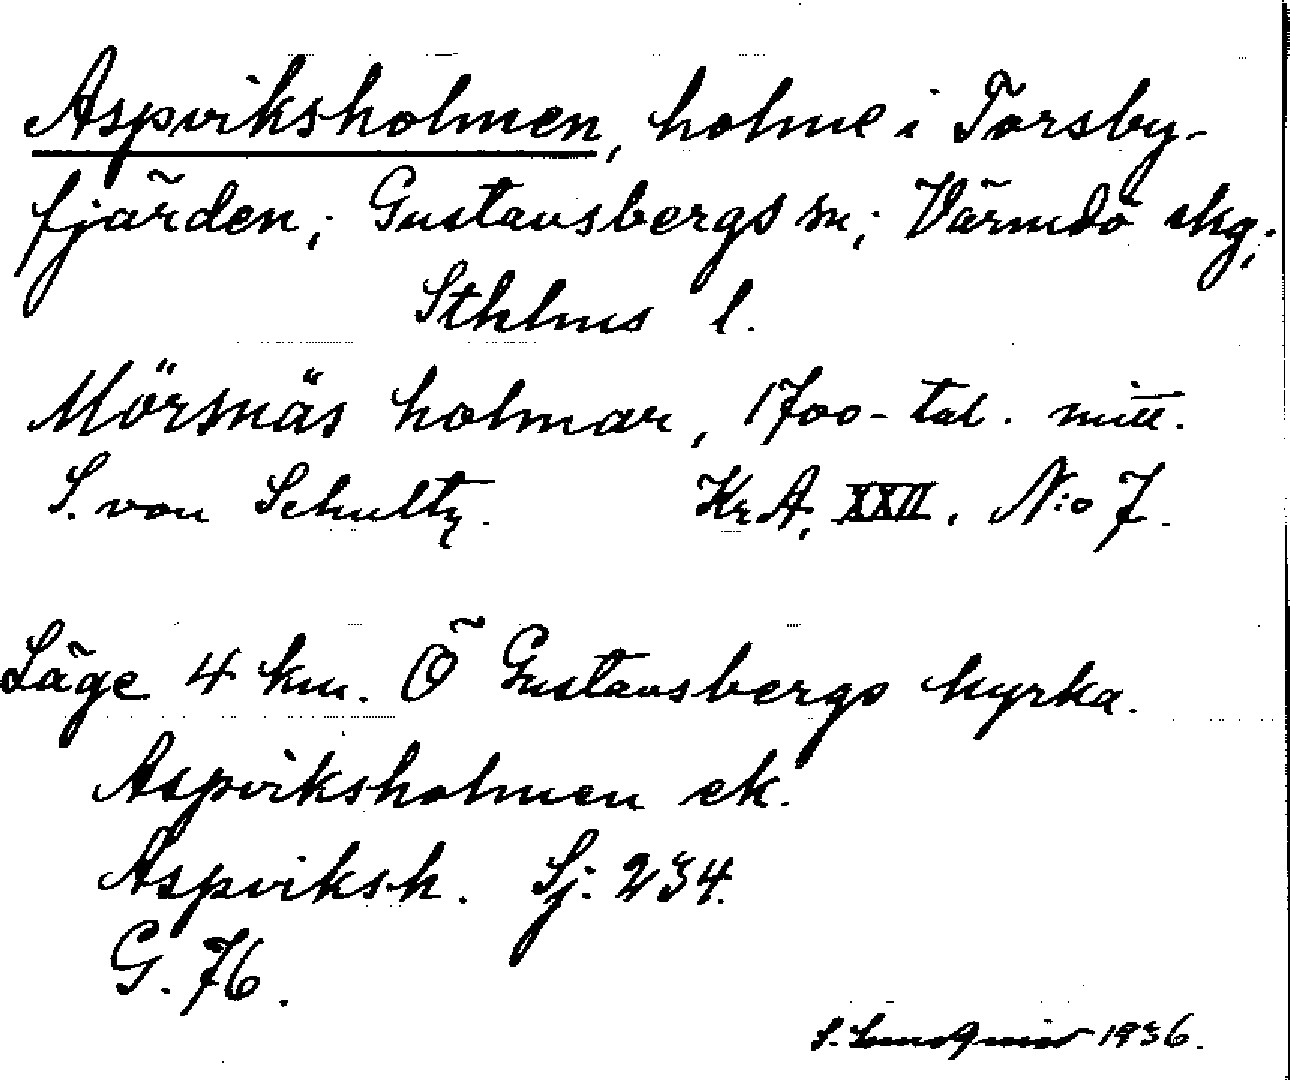 Aspviksholmen, holme i Torsby-
fjärden; Gustavsbergs sn; Värmdö skg;
Sthlms l.
Mörsnäs holmar, 1700-tal. mitt.
S. von Schultz. Kr.A. XXII. N:o 7.
Läge 4 km. Ö Gustavsbergs kyrka.
Aspviksholmen ek.
Aspviksh. Sj. 234.
G. 76.
S. Lundqvist 1936.